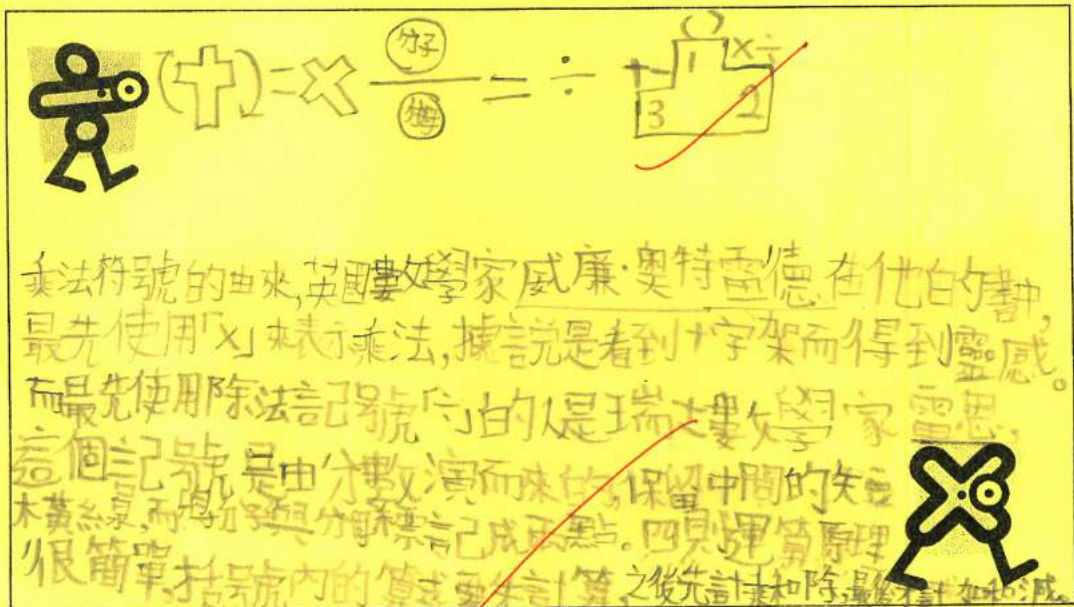 (✝)=× 分子/分母 = ÷
( ) 1 ×÷ 2 +- 3
乘法符號的由來,英國數學家威廉·奧特雷德在他的書中,
最先使用「×」來表示乘法,據說是看到十字架而得到靈感。
而最先使用除法記號「÷」的人是瑞士數學家雷恩,
這個記號是由分數演而來的,保留中間的矢豆
橫線,而分子與分母標記成兩點。四則運算原理
很簡單,括號內的算式要先計算,之後先計乘和除,最後才計加和減。